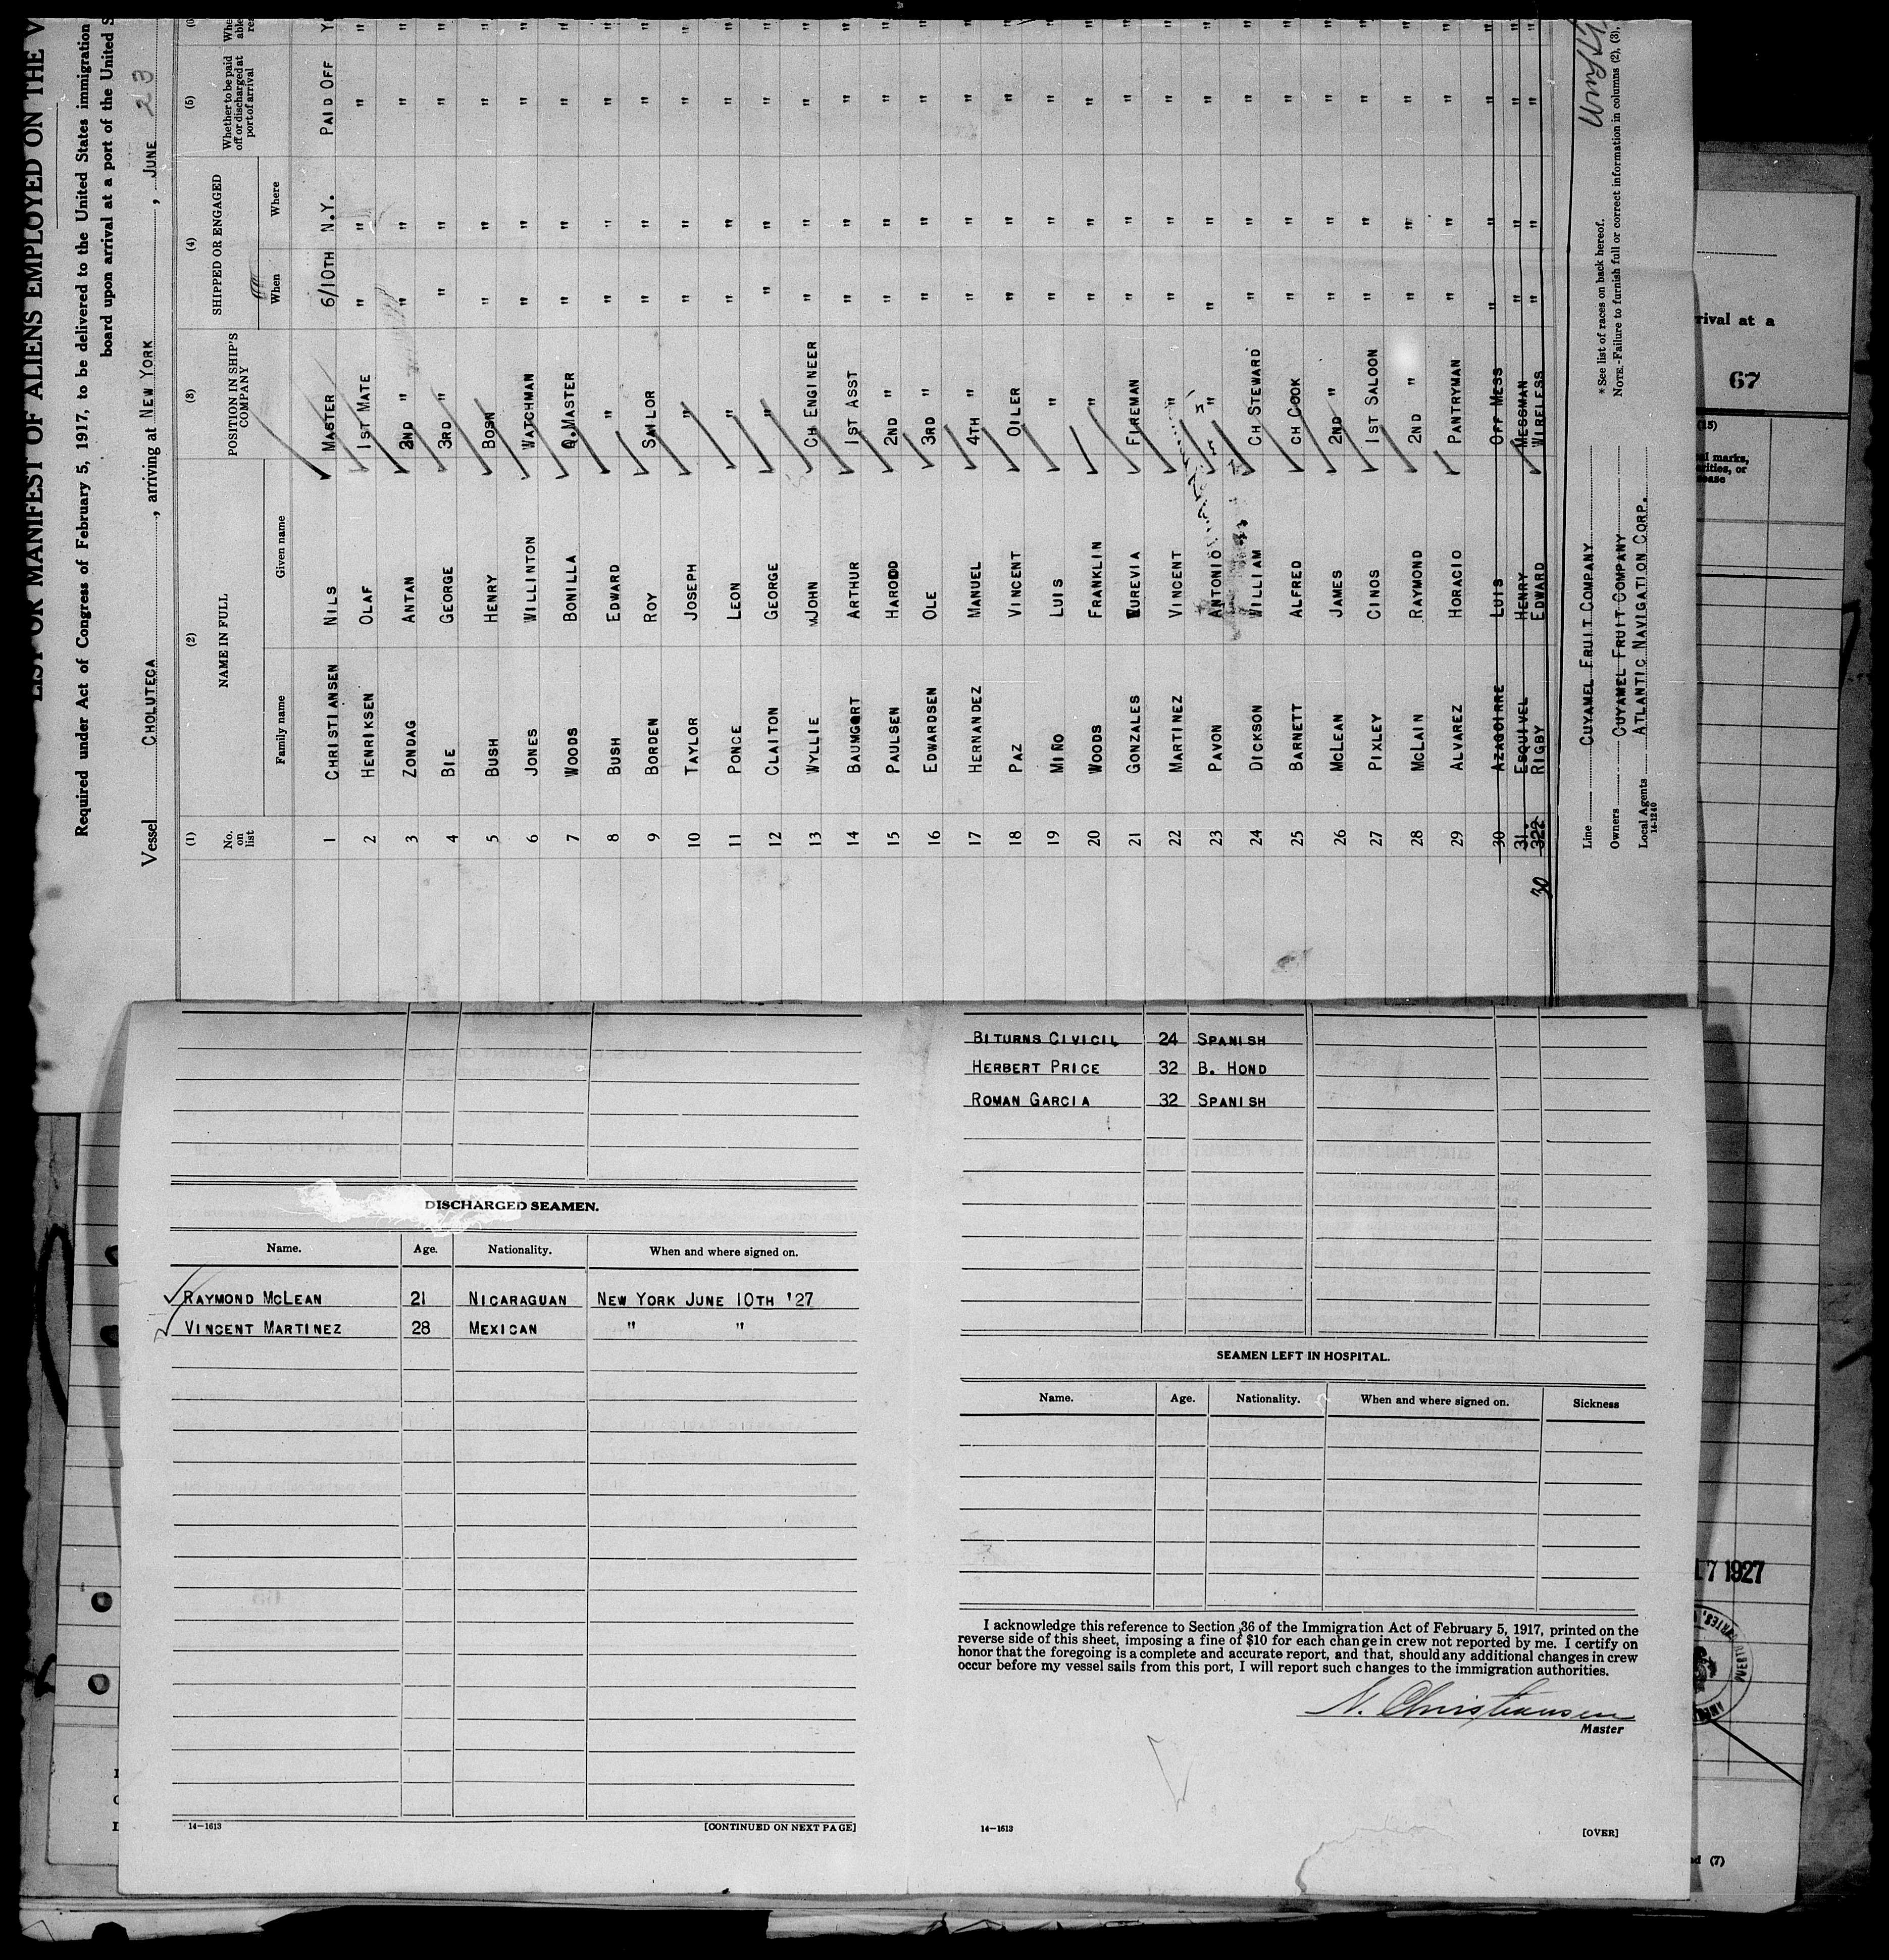 LIST OR MANIFEST OF ALIENS EMPLOYED ON THE V
Required under Act of Congress of February 5, 1917, to be delivered to the United States immigration
board upon arrival at a port of the United S
Vessel CHOLUTECA, arriving at NEW YORK, JUNE 23
(1) (2) (3) (4) (5)
No. on list NAME IN FULL POSITION IN SHIP'S COMPANY SHIPPED OR ENGAGED Whether to be paid off or discharged at port of arrival
Family name Given name When Where
1 CHRISTIANSEN NILS MASTER 6/10TH N.Y. PAID OFF
2 HENRIKSEN OLAF 1ST MATE " " "
3 ZONDAG ANTAN 2ND " " " "
4 BIE GEORGE 3RD " " " "
5 BUSH HENRY BOSN " " "
6 JONES WILLINTON WATCHMAN " " "
7 WOODS BONILLA Q.MASTER " " "
8 BUSH EDWARD " " " "
9 BORDEN ROY SAILOR " " "
10 TAYLOR JOSEPH " " " "
11 PONCE LEON " " " "
12 CLAITON GEORGE " " " "
13 WYLLIE JOHN CH ENGINEER " " "
14 BAUMGORT ARTHUR 1ST ASST " " "
15 PAULSEN HARODD 2ND " " " "
16 EDWARDSEN OLE 3RD " " " "
17 HERNANDEZ MANUEL 4TH " " " "
18 PAZ VINCENT OILER " " "
19 MIÑO LUIS " " " "
20 WOODS FRANKLIN " " " "
21 GONZALES EUREVIA FIREMAN " " "
22 MARTINEZ VINCENT " " " "
23 PAVON ANTONIO " " " "
24 DICKSON WILLIAM CH STEWARD " " "
25 BARNETT ALFRED CH COOK " " "
26 MCLEAN JAMES 2ND " " " "
27 PIXLEY CINOS 1ST SALOON " " "
28 MCLAIN RAYMOND 2ND " " " "
29 ALVAREZ HORACIO PANTRYMAN " " "
30 AZAGOIRRE LUIS OFF MESS " " "
31 ESQUIVEL HENRY MESSMAN " " "
30 RIGBY EDWARD WIRELESS " " "
Line CUYAMEL FRUIT COMPANY
Owners CUYAMEL FRUIT COMPANY
Local Agents ATLANTIC NAVIGATION CORP.
14-1240
* See list of races on back hereof.
NOTE.-Failure to furnish full or correct information in columns (2), (3),
rival at a
67
(15)
al marks,
17 1927
(7)
DISCHARGED SEAMEN.
Name. Age. Nationality. When and where signed on.
RAYMOND MCLEAN 21 NICARAGUAN NEW YORK JUNE 10TH '27
VINCENT MARTINEZ 28 MEXICAN " "
14-1613 [CONTINUED ON NEXT PAGE]
BITURNS CIVICIL 24 SPANISH
HERBERT PRICE 32 B. HOND
ROMAN GARCIA 32 SPANISH
SEAMEN LEFT IN HOSPITAL.
Name. Age. Nationality. When and where signed on. Sickness
I acknowledge this reference to Section 36 of the Immigration Act of February 5, 1917, printed on the
reverse side of this sheet, imposing a fine of $10 for each change in crew not reported by me. I certify on
honor that the foregoing is a complete and accurate report, and that, should any additional changes in crew
occur before my vessel sails from this port, I will report such changes to the immigration authorities.
N. Christiansen
Master
14-1613 [OVER]